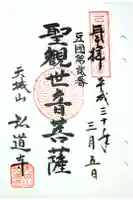 奉拝
平成三十年
三月五日
豆國第三番
聖観世音菩薩
天城山
弘道寺